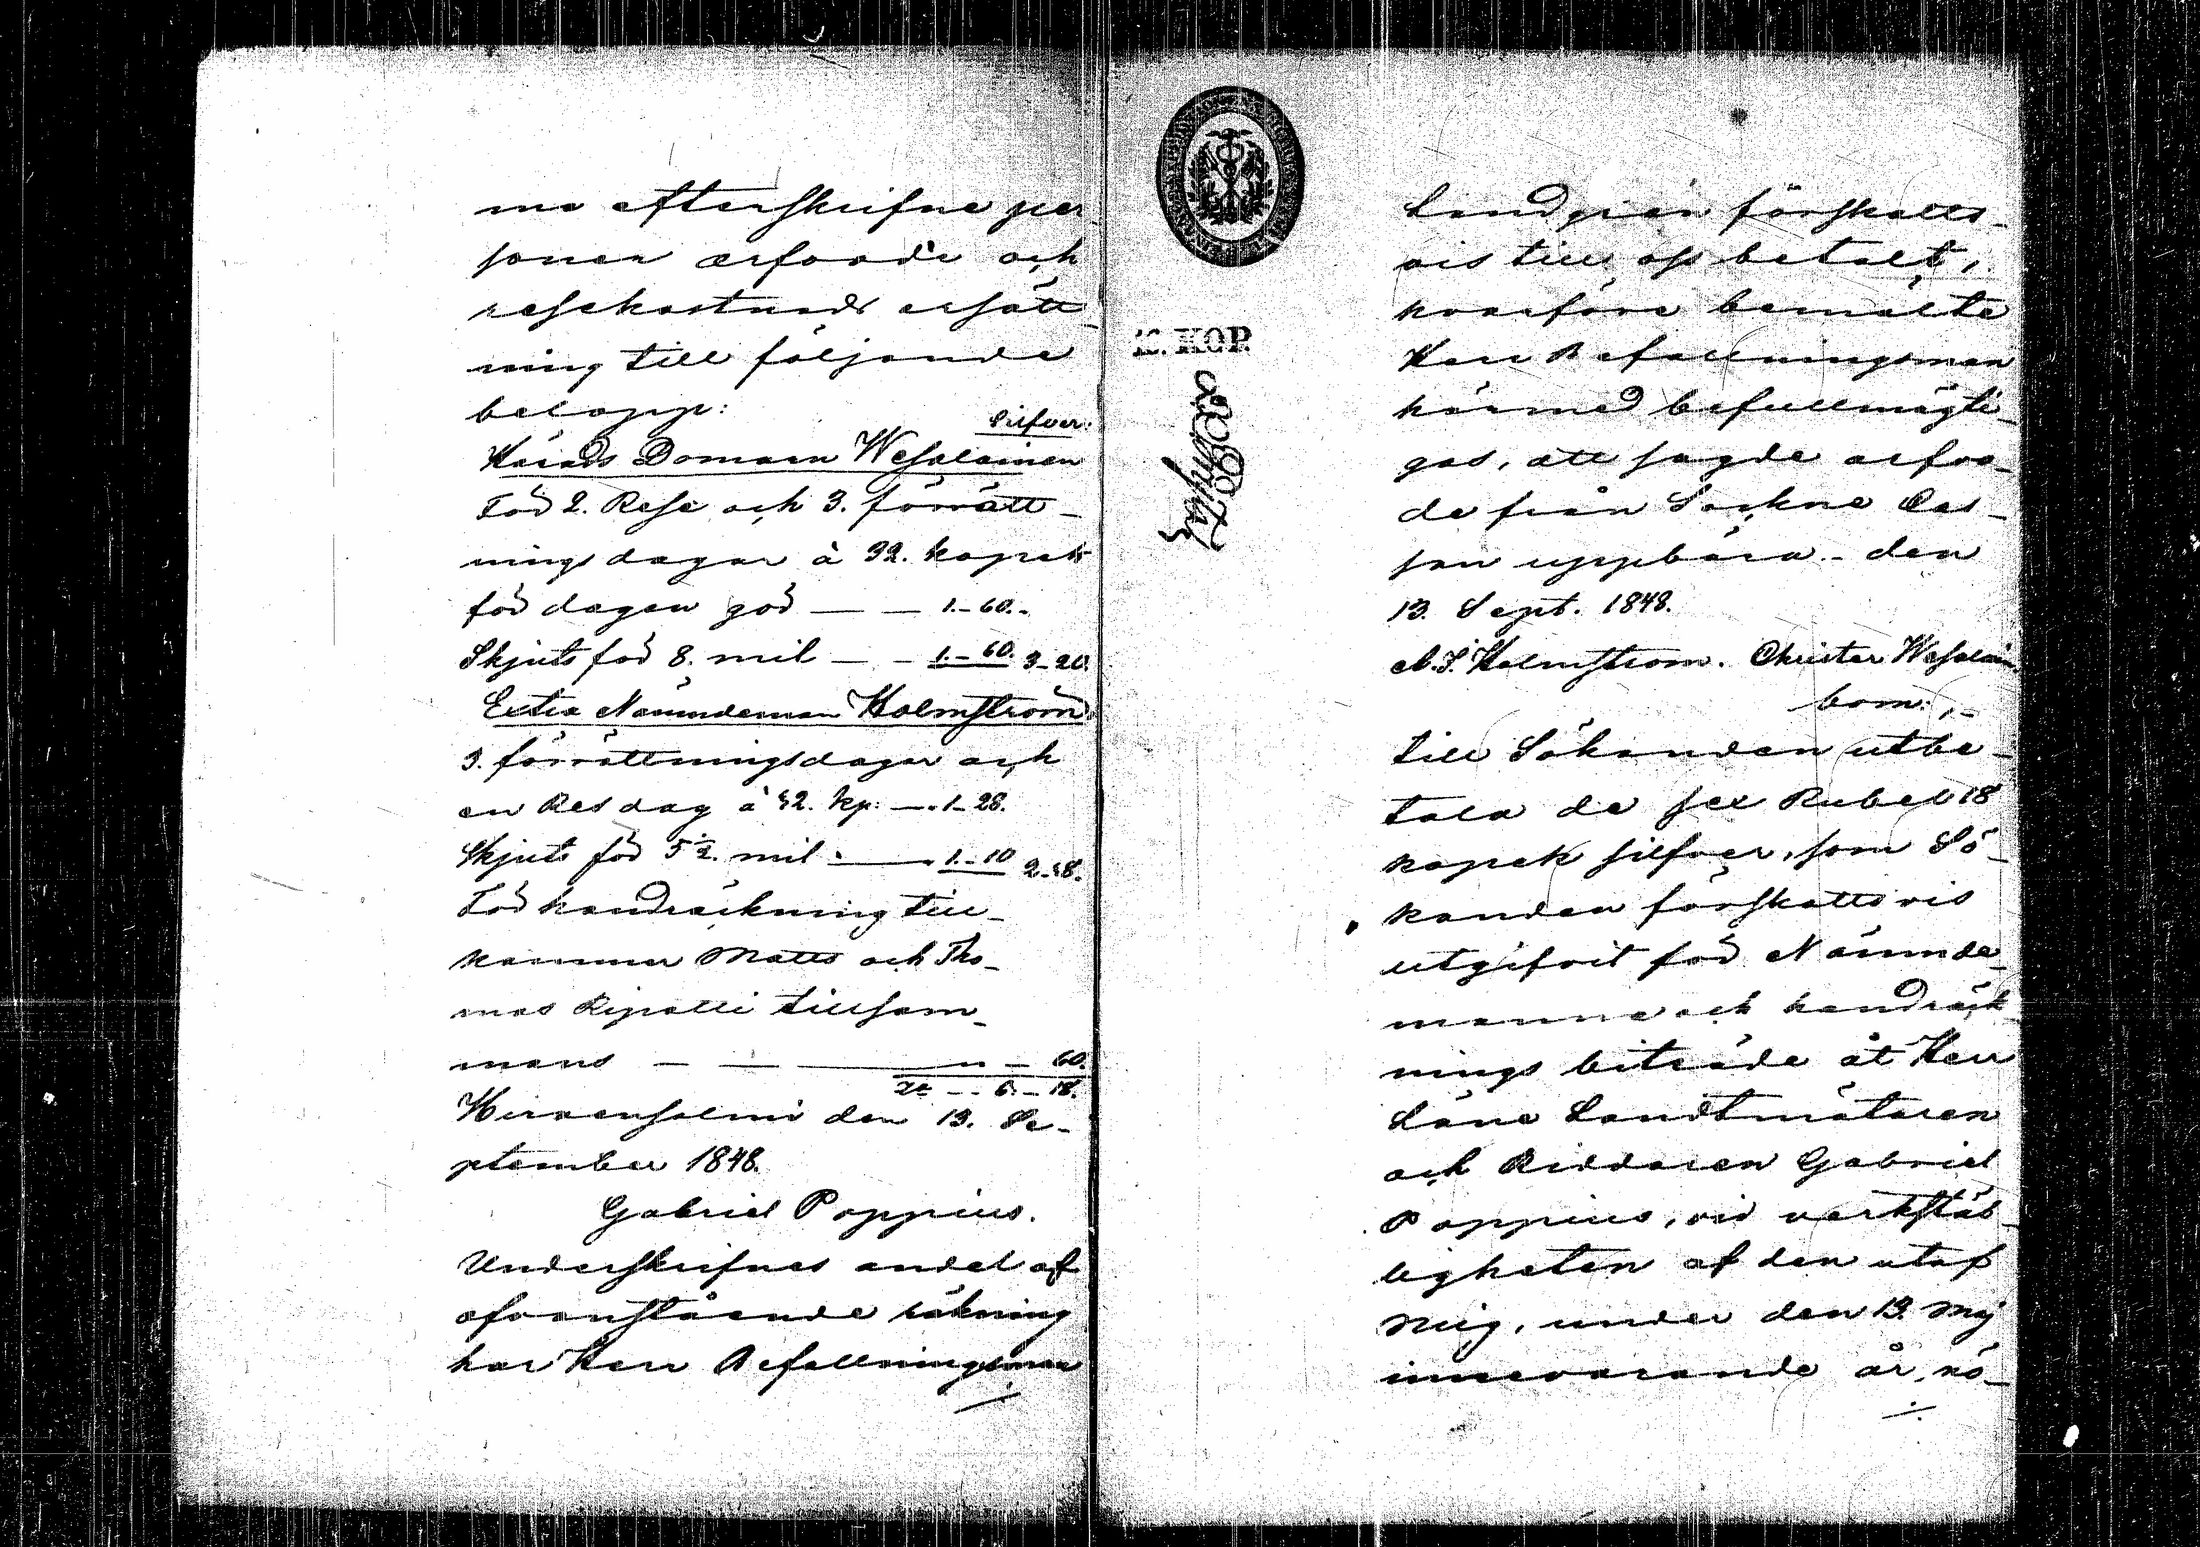 me efterskrifne per-
soner arfvode och
resekostnads ersätt-
ning till följande
belopp:
Silfver.
Härads Domarn Wesalainen
För 2. Rese och 3. förrätt-
nings dagar à 32. kopek
för dagen gör — — 1.-60.-
Skjuts för 8. mil — - 1.-60. 3-20.
Extra Nämndeman Holmström
3. förrättningsdagar och
en Resdag à 32. kp: — 1-28.
Skjuts för 5½. mil — 1.-10 2-38.
För handräckning till-
kommer Matts och Tho-
mas Ripatti tillsam-
mans — — — „ — 60.
6.-18.
Hirvensalmi den 13. Se-
ptember 1848.
Gabriel Poppius.
Underskrifnes andel af
ofvanstående räkning
har Herr Befallningsman
./.
12. KOP.
Landgrén förskotts-
vis till oss betalt,
hvarföre bemälte
Herr Befallningsman
härmed befullmägti-
gas, att sagde arfvo-
de från Sockne Cas-
san uppbära.- den
13. Sept. 1848.
N. J. Holmström. Christer Wesalain.
bom: ,-
till Sökanden utbe-
tala de sex Rubel 18
kopek silfver, som Sö-
kanden förskottsvis
utgifvit för Nämnde-
manna och handräck-
nings biträde åt Herr
Läne Landtmätaren
och Riddaren Gabriel
Poppius, vid verkstäl-
ligheten af den utaf
mig, under den 13. Maj
innevarande år, nö-
./.